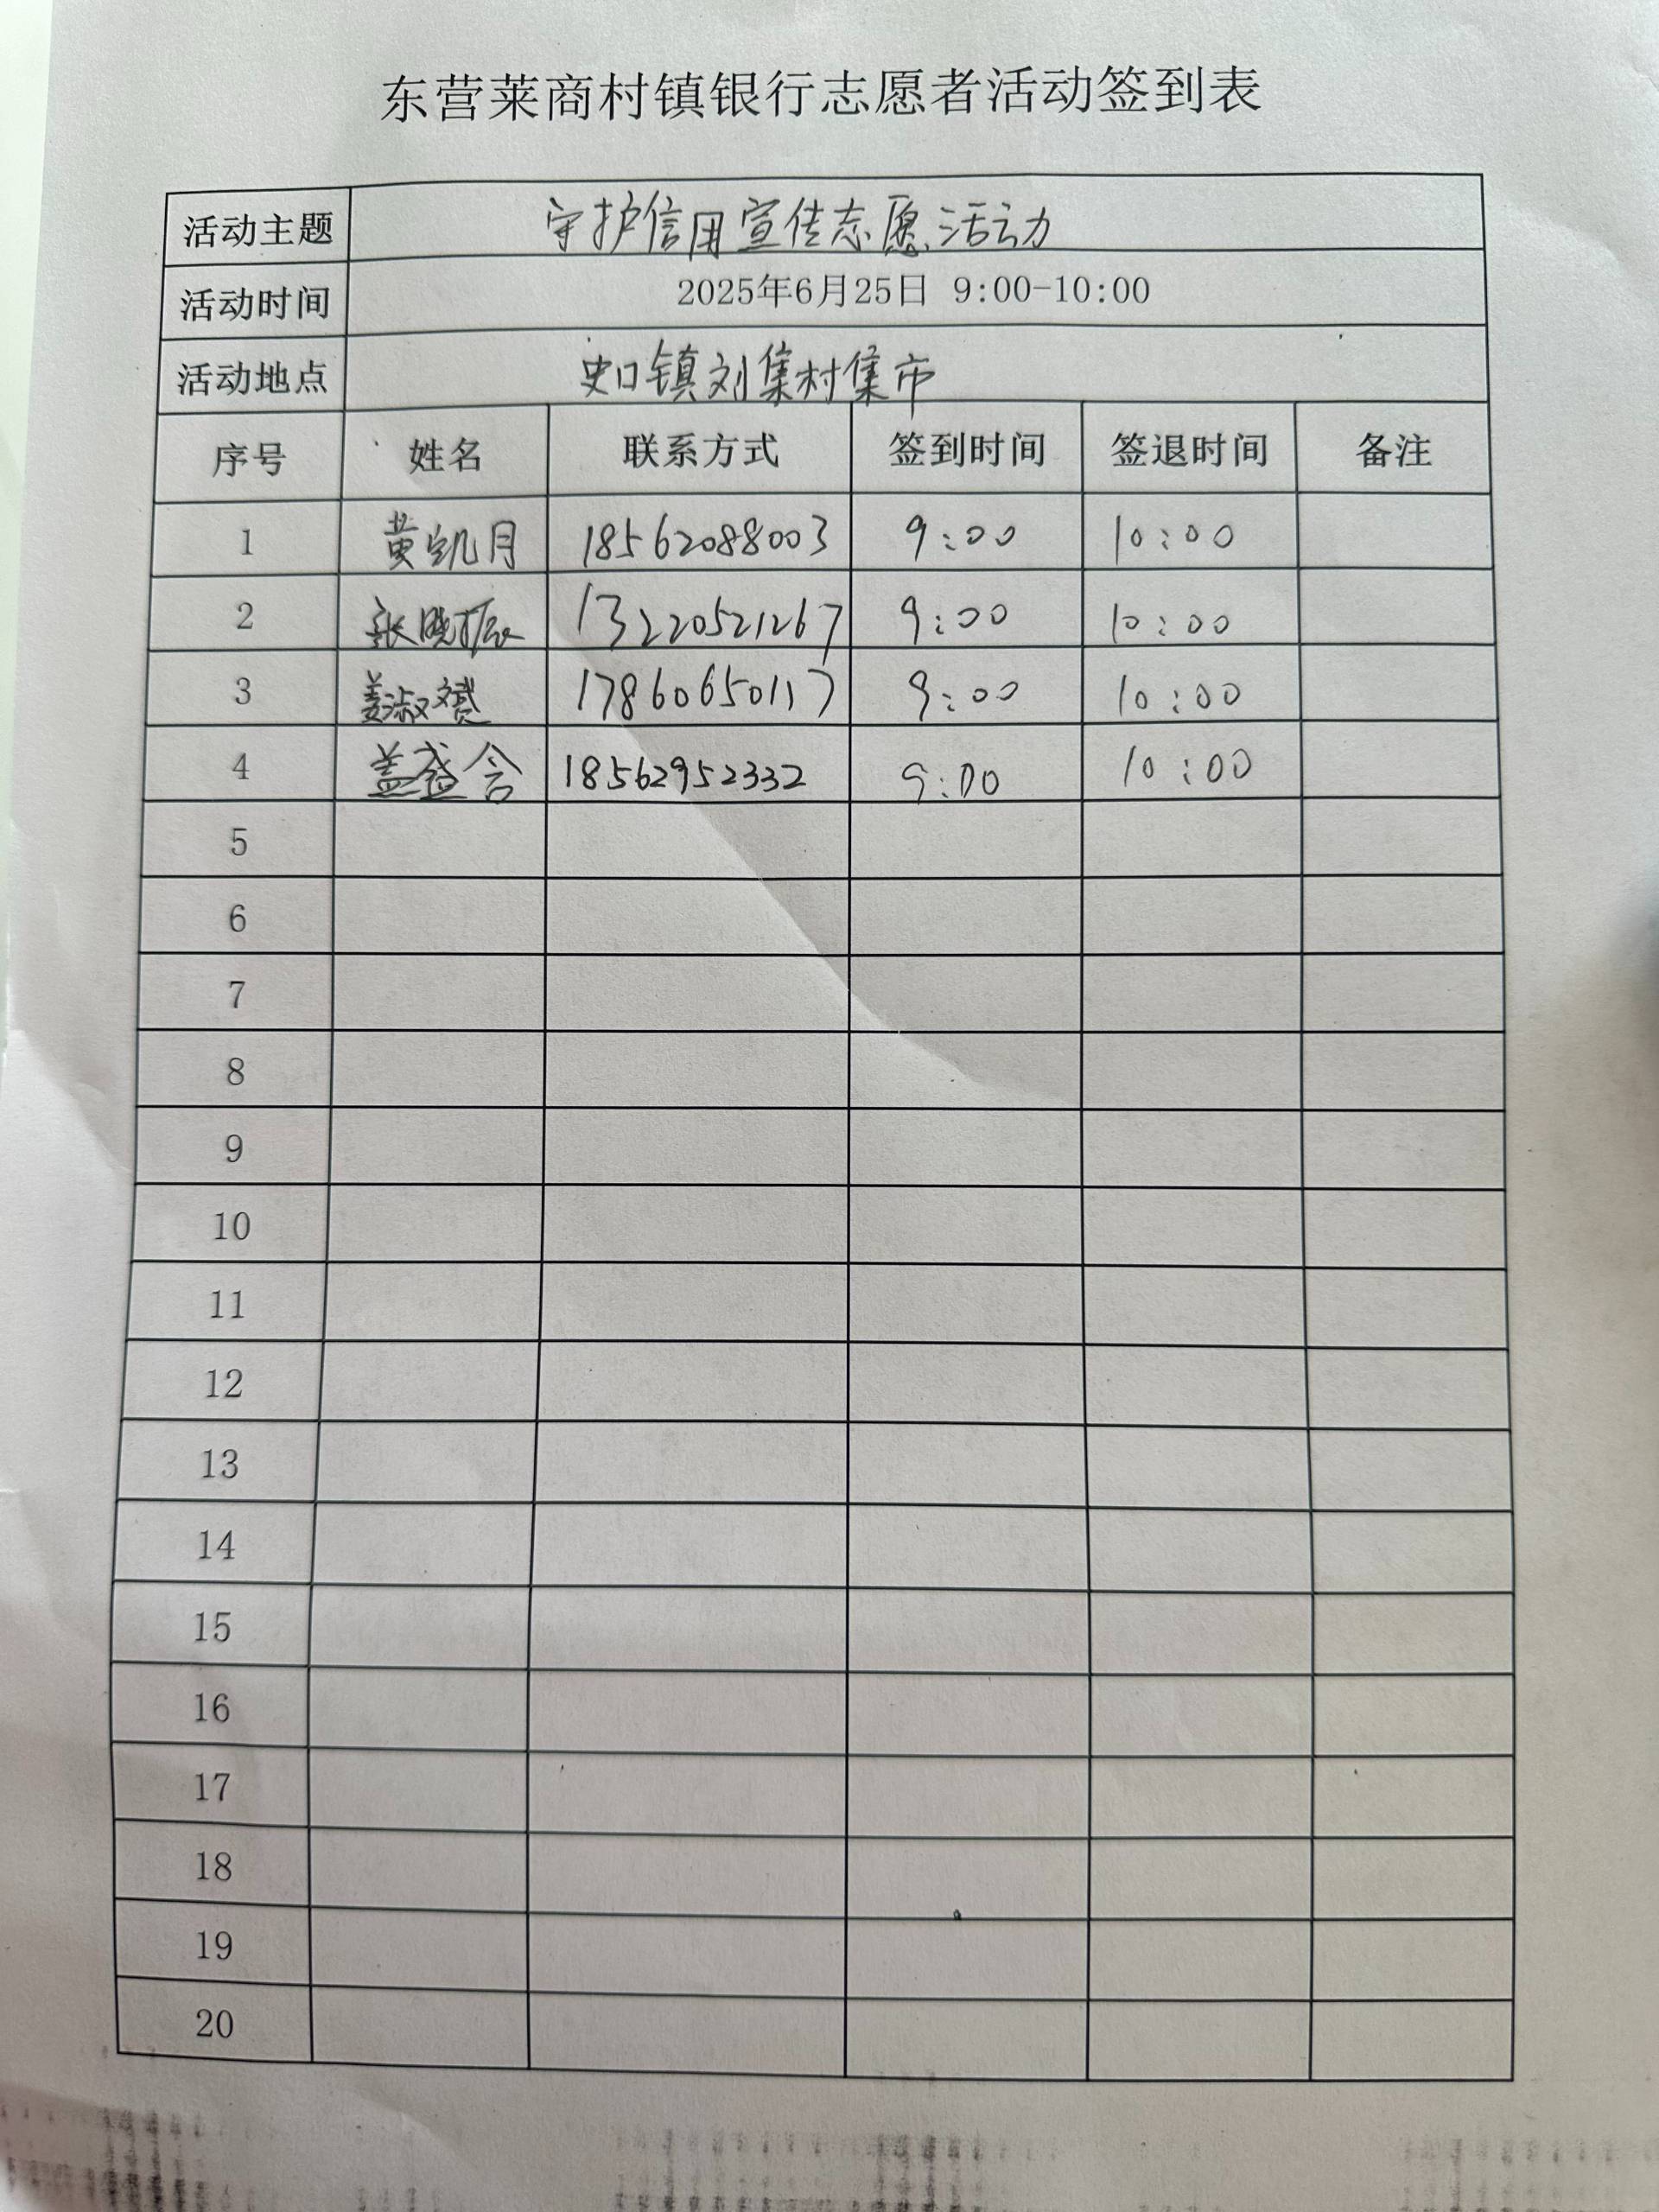 东营莱商村镇银行志愿者活动签到表
活动主题 守护信用宣传志愿活动
活动时间 2025年6月25日 9:00-10:00
活动地点 史口镇刘集村集市
序号 姓名 联系方式 签到时间 签退时间 备注
1 黄凯月 18562088003 9:00 10:00
2 张晓振 13220521267 9:00 10:00
3 姜淑赟 17860650117 9:00 10:00
4 盖盛含 18562952332 9:00 10:00
5
6
7
8
9
10
11
12
13
14
15
16
17
18
19
20